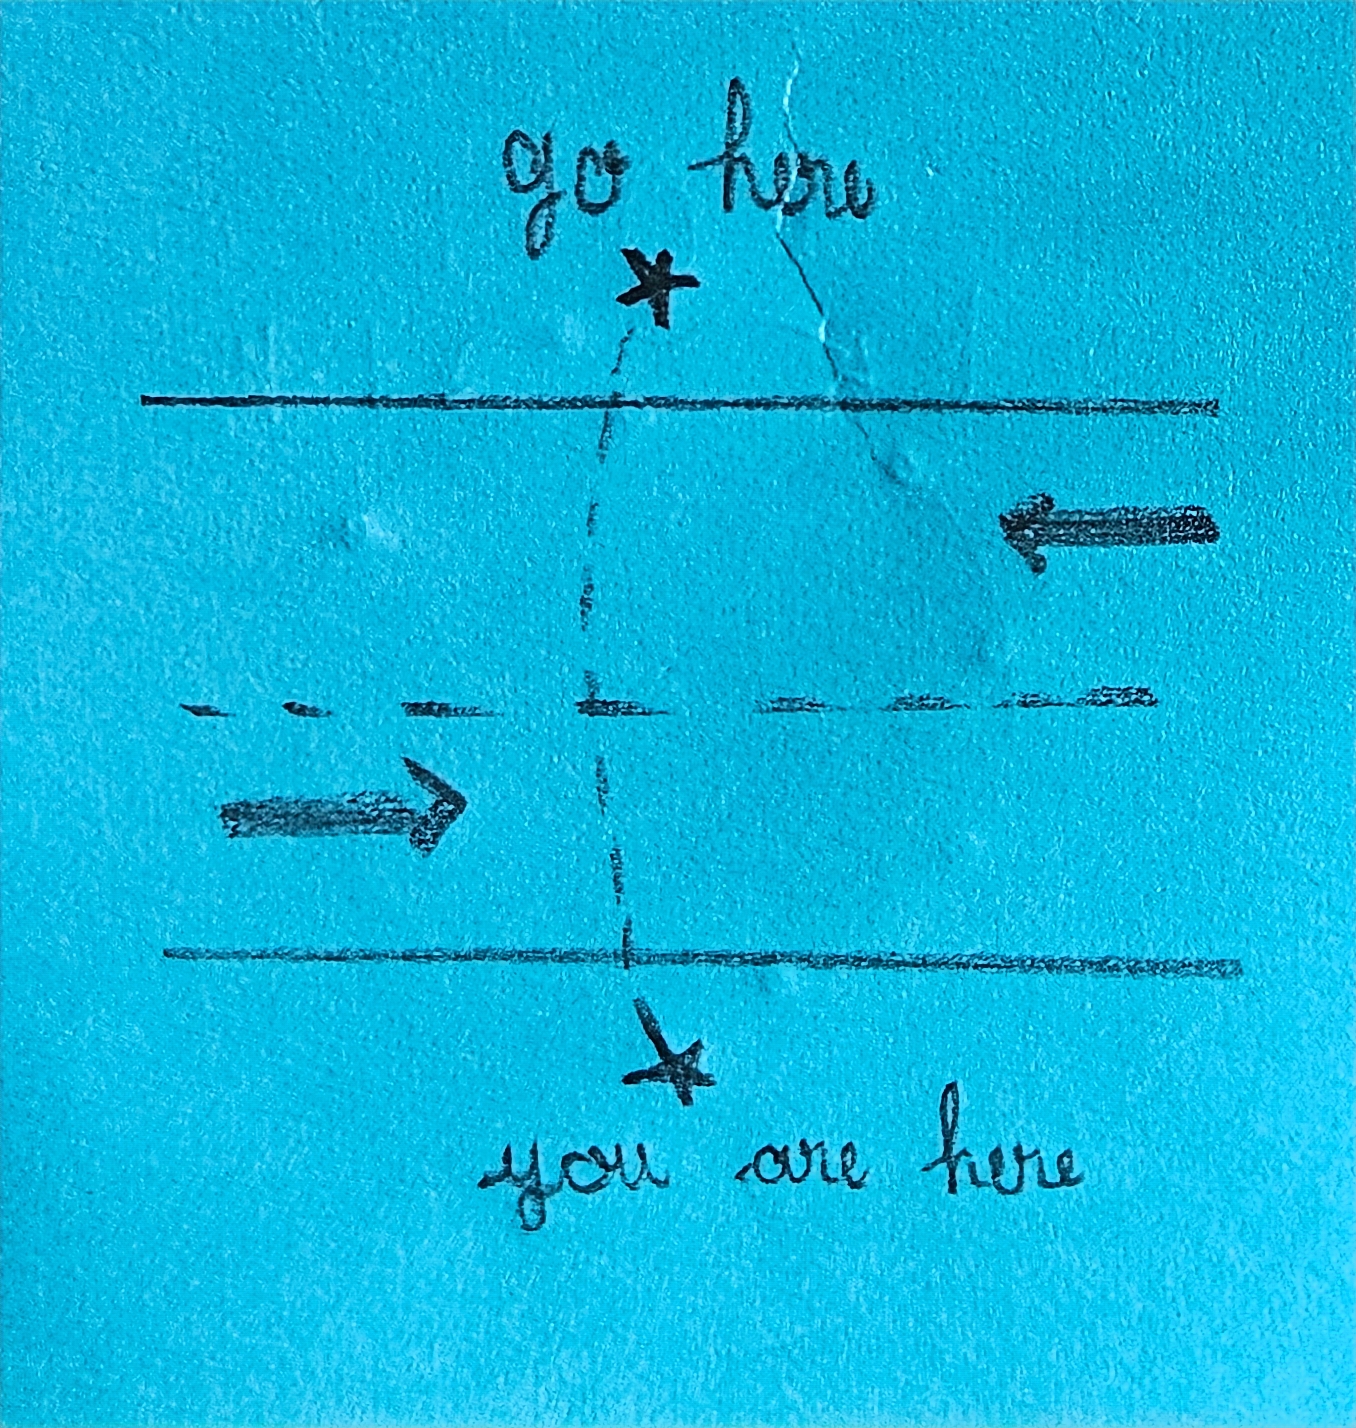 go here
you are here